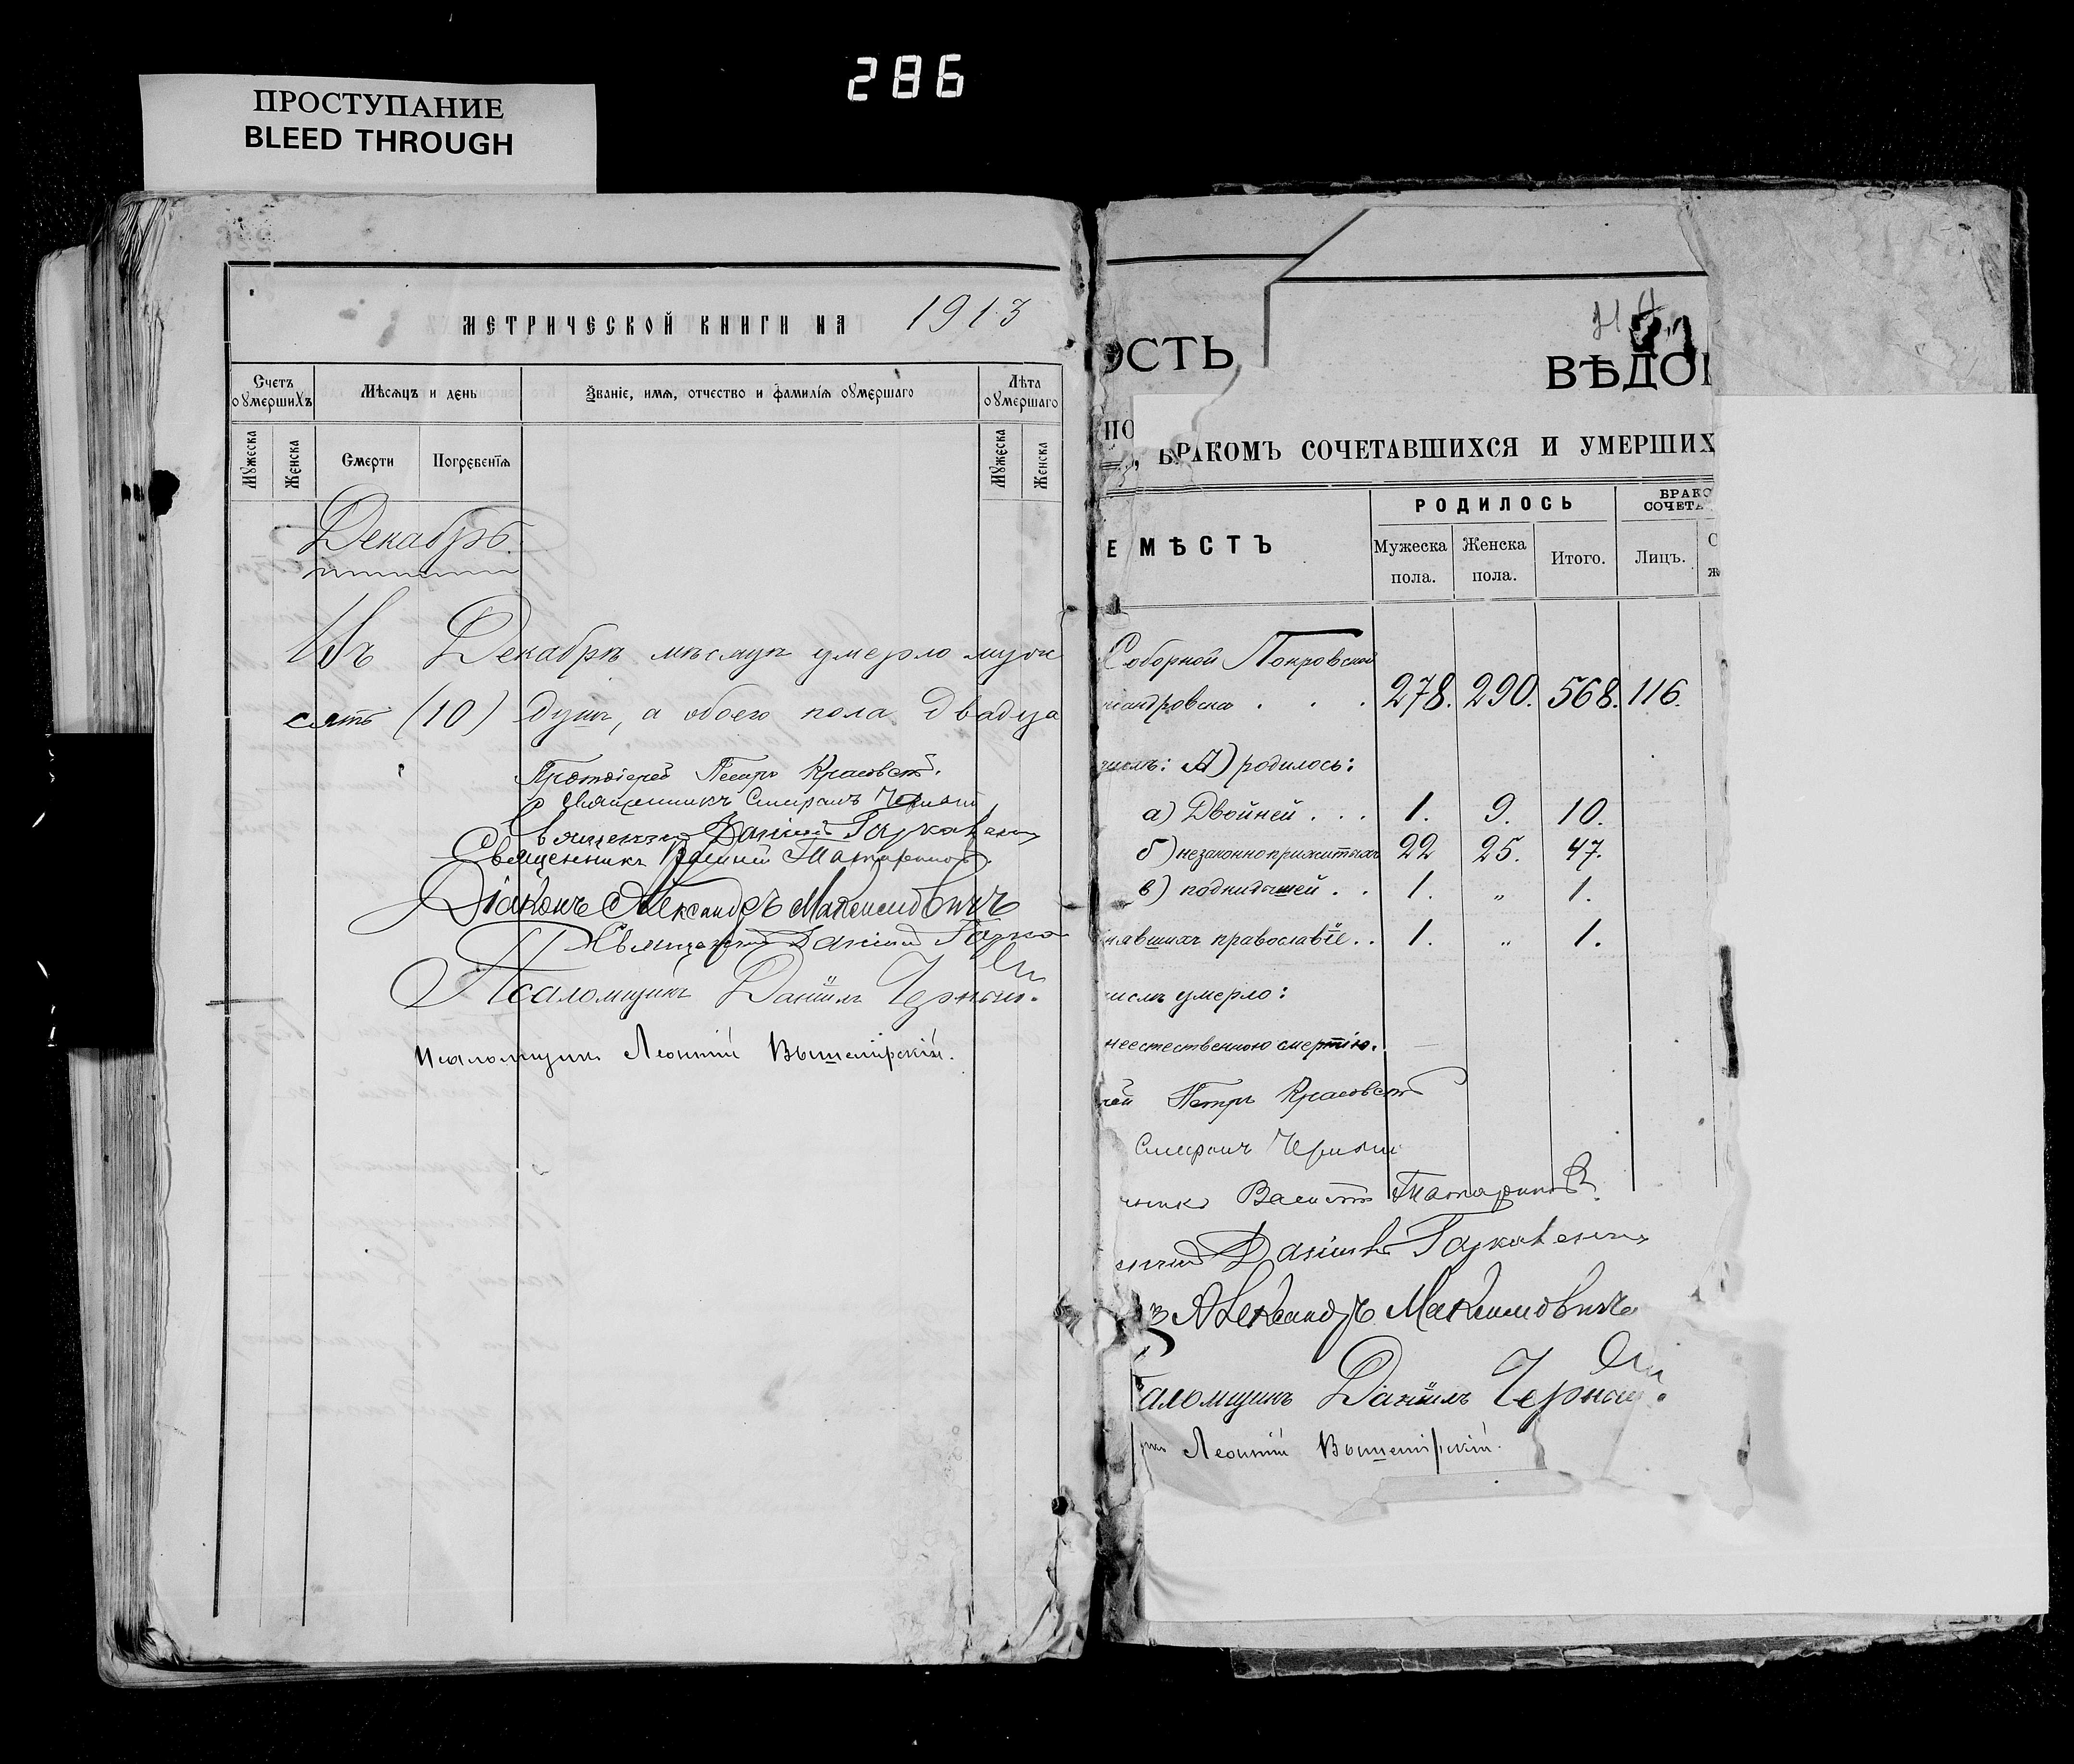 286
ПРОСТУПАНИЕ
BLEED THROUGH
МЕТРИЧЕСКОЙ КНИГИ НА 1913
Счетъ оумершихъ
Мѣсяцъ и день
Званіе, имя, отчество и фамилія оумершаго
Лѣта оумершаго
Мужеска
Женска
Смерти
Погребенія
Мужеска
Женска
Декабрь
Въ Декабрѣ мѣсяцѣ умерло муж
сять (10) душъ, а обоего пола двадца
Протоіерей Петръ Красовскій
Священникъ Симеонъ Черный
Священникъ Даніилъ
Священникъ Василій Татариновъ
Діаконъ Александръ Максимовичъ
Священникъ Даніилъ
Псаломщикъ Даніилъ Черный.
Псаломщикъ Леонтій Вышемірскій.
ОСТЬ
ВѢДОМ
ПО
БРАКОМЪ СОЧЕТАВШИХСЯ И УМЕРШИХ
Е МѢСТЪ
РОДИЛОСЬ
БРАКО
СОЧЕТА
Мужеска пола.
Женска пола.
Итого.
Лицъ.
Соборной Покровской
ксандровска . . . 278. 290. 568. 116.
числѣ: А) родилось:
а) Двойней . . . 1. 9. 10.
б) незаконноприжитыхъ 22 25. 47.
в) подкидышей . . 1. „ 1.
нявшихъ православіе . . 1. „ 1.
числѣ умерло:
неестественною смертію.
рей Петръ Красовскій
Симеонъ Черный
никъ Василій Татариновъ
Даніилъ
ъ Александръ Максимовичъ
саломщикъ Даніилъ Черный.
Леонтій Вышемірскій.